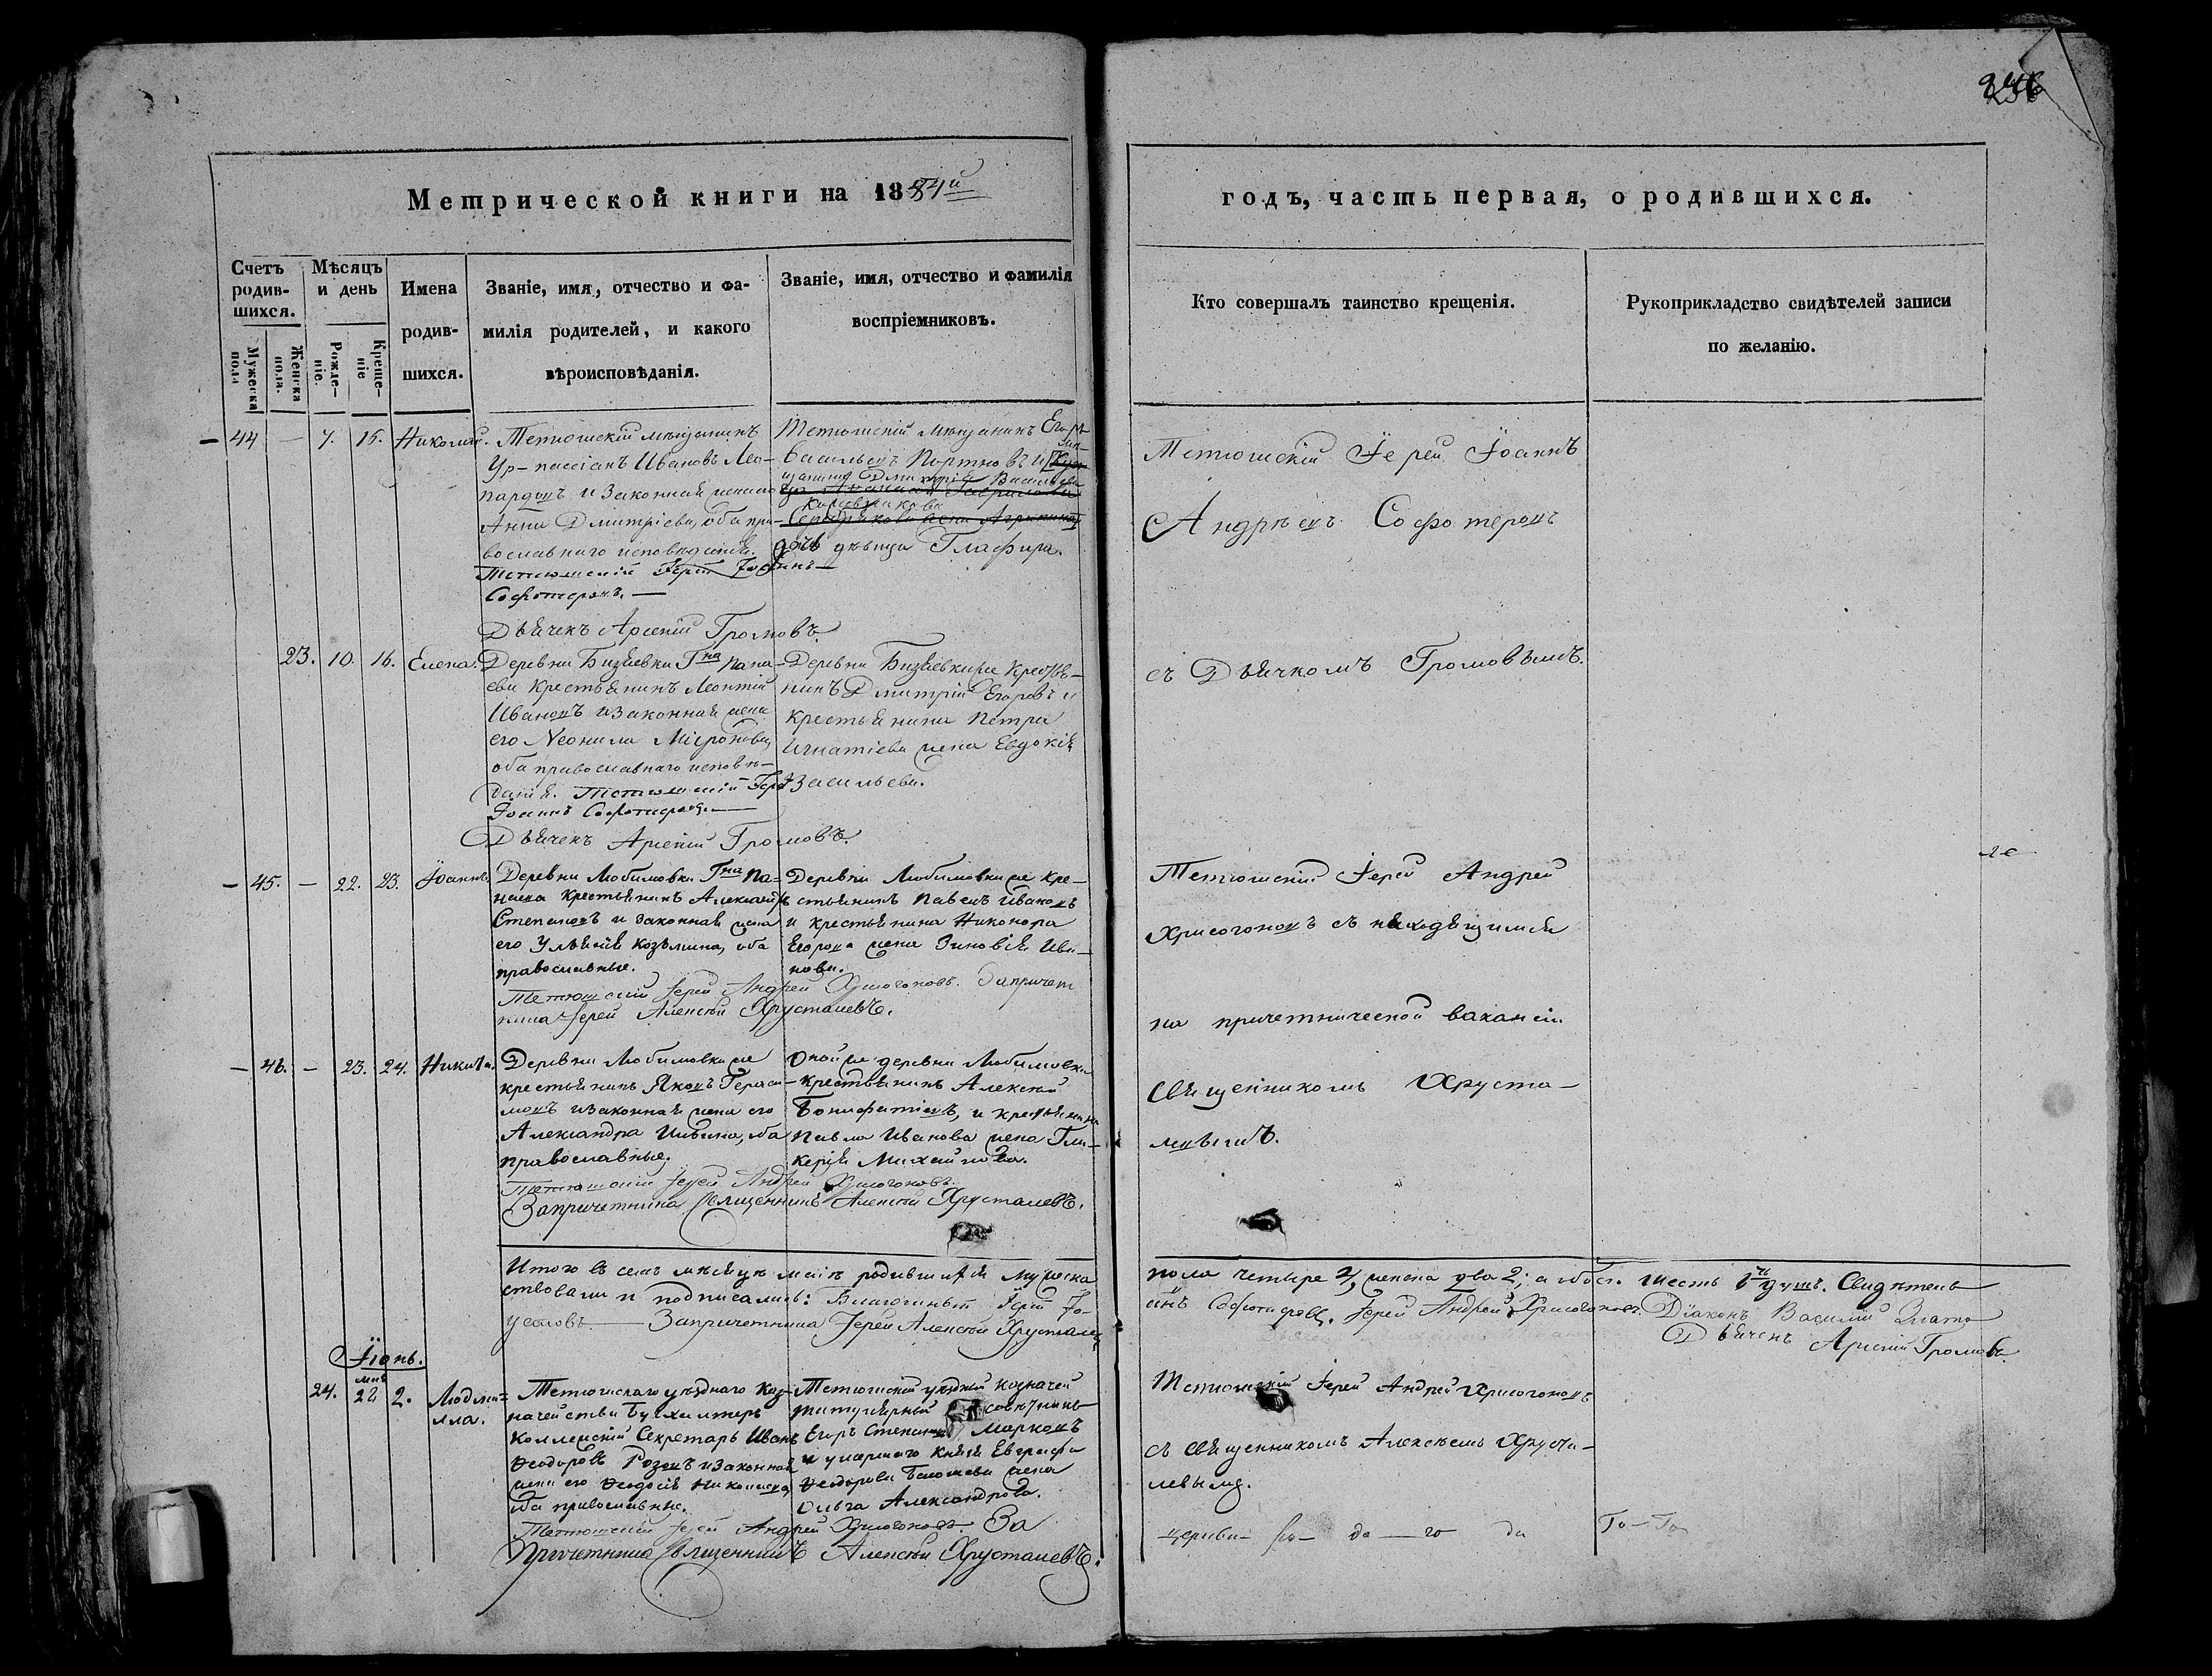 Метрической книги на 18
годъ, часть первая, о родившихся.
Счетъ родив-шихся.
Мужеска пола
Женска пола.
Мѣсяцъ и день
Рожде-ніе.
Креще-ніе
Имена родив-шихся.
Званіе, имя, отчество и фа-
милія родителей, и какого
вѣроисповѣданія.
Званіе, имя, отчество и фамилія
воспріемниковъ.
Кто совершалъ таинство крещенія.
Рукоприкладство свидѣтелей записи
по желанію.
44 — 7. 15. Николай.
Тетюшскій мѣщанинъ
Ивановъ Лео-
пардовъ и законная жена
Анна Дмитріева, оба пра-
вославнаго исповѣданія.
Тетюшскій Іерей Іоаннъ
Софотеровъ.
Дьячекъ Арсеній Громовъ.
Тетюшскій мѣщанинъ Егоръ
Васильевъ Портновъ и
Дмитрія Васильева
дочь дѣвица Глафира.
Тетюшскій Іерей Іоаннъ
Андреевъ Софотеровъ
съ Дьячкомъ Громовымъ.
23. 10. 16. Елена.
Деревни Бизяевки Гна Пана-
ева крестьянинъ Леонтій
Ивановъ и законная жена
его Неонила Миронова,
оба православнаго исповѣ-
данія. Тетюшскій Іерей
Іоаннъ Софотеровъ.
Дьячекъ Арсеній Громовъ.
Деревни Бизяевки же крестья-
нинъ Дмитрій Егоровъ и
крестьянина Петра
Игнатіева жена Евдокія
Васильева.
45. — 22. 23. Іоаннъ.
Деревни Любимовки Гна Па-
наева крестьянинъ Алексѣй
Степановъ и законная жена
его Ульянія Козьмина, оба
православные.
Тетюшскій Іерей Андрей Хрисогоновъ. За причет
ника Іерей Алексѣй Хрусталевъ.
Деревни Любимовки же кре-
стьянинъ Павелъ Ивановъ
и крестьянина Никонора
Егорова жена Зиновія Ива-
нова.
Тетюшскій Іерей Андрей
Хрисогоновъ съ находящимся
на причетнической вакансіи
Священникомъ Хруста-
левымъ.
46. — 23. 24. Никита.
Деревни Любимовки же
крестьянинъ Яковъ Гераси-
мовъ и законная жена его
Александра Ильина, оба
православные.
Тетюшскій Іерей Андрей Хрисогоновъ.
За причетника Священникъ Алексѣй Хрусталевъ.
Оной же деревни Любимовки
крестьянинъ Алексѣй
Бонифатіевъ, и крестьянина
Павла Иванова жена Гли-
керія Михайлова.
Итого въ семъ мѣсяцѣ маіѣ родившихся мужеска
пола четыре 4, женска два 2; а обоего шесть 6 душъ. Свидѣтель
ствовали и подписались: Благочинный Іерей Іо-
аннъ Софотеровъ. Іерей Андрей Хрисогоновъ. Діаконъ Василій Злато
устовъ. За причетника Іерей Алексѣй Хрусталевъ
Дьячекъ Арсеній Громовъ.
Іюнь.
24. 28 2. Людми-
лла.
Тетюшскаго уѣзднаго каз-
начейства Бухгалтеръ
Коллежскій Секретарь Иванъ
Ѳеодоровъ Розовъ и законная
жена его Ѳеодосія Николаева,
оба православные.
Тетюшскій Іерей Андрей Хрисогоновъ. За
причетника Священникъ Алексѣй Хрусталевъ.
Тетюшскій уѣздный казначей
титулярный совѣтникъ
Егоръ Степановъ Марковъ
и умершаго Князя Евграфа
Ѳеодорова жена
Ольга Александрова.
Тетюшскій Іерей Андрей Хрисогоновъ
съ священникомъ Алексѣемъ Хруста-
левымъ.